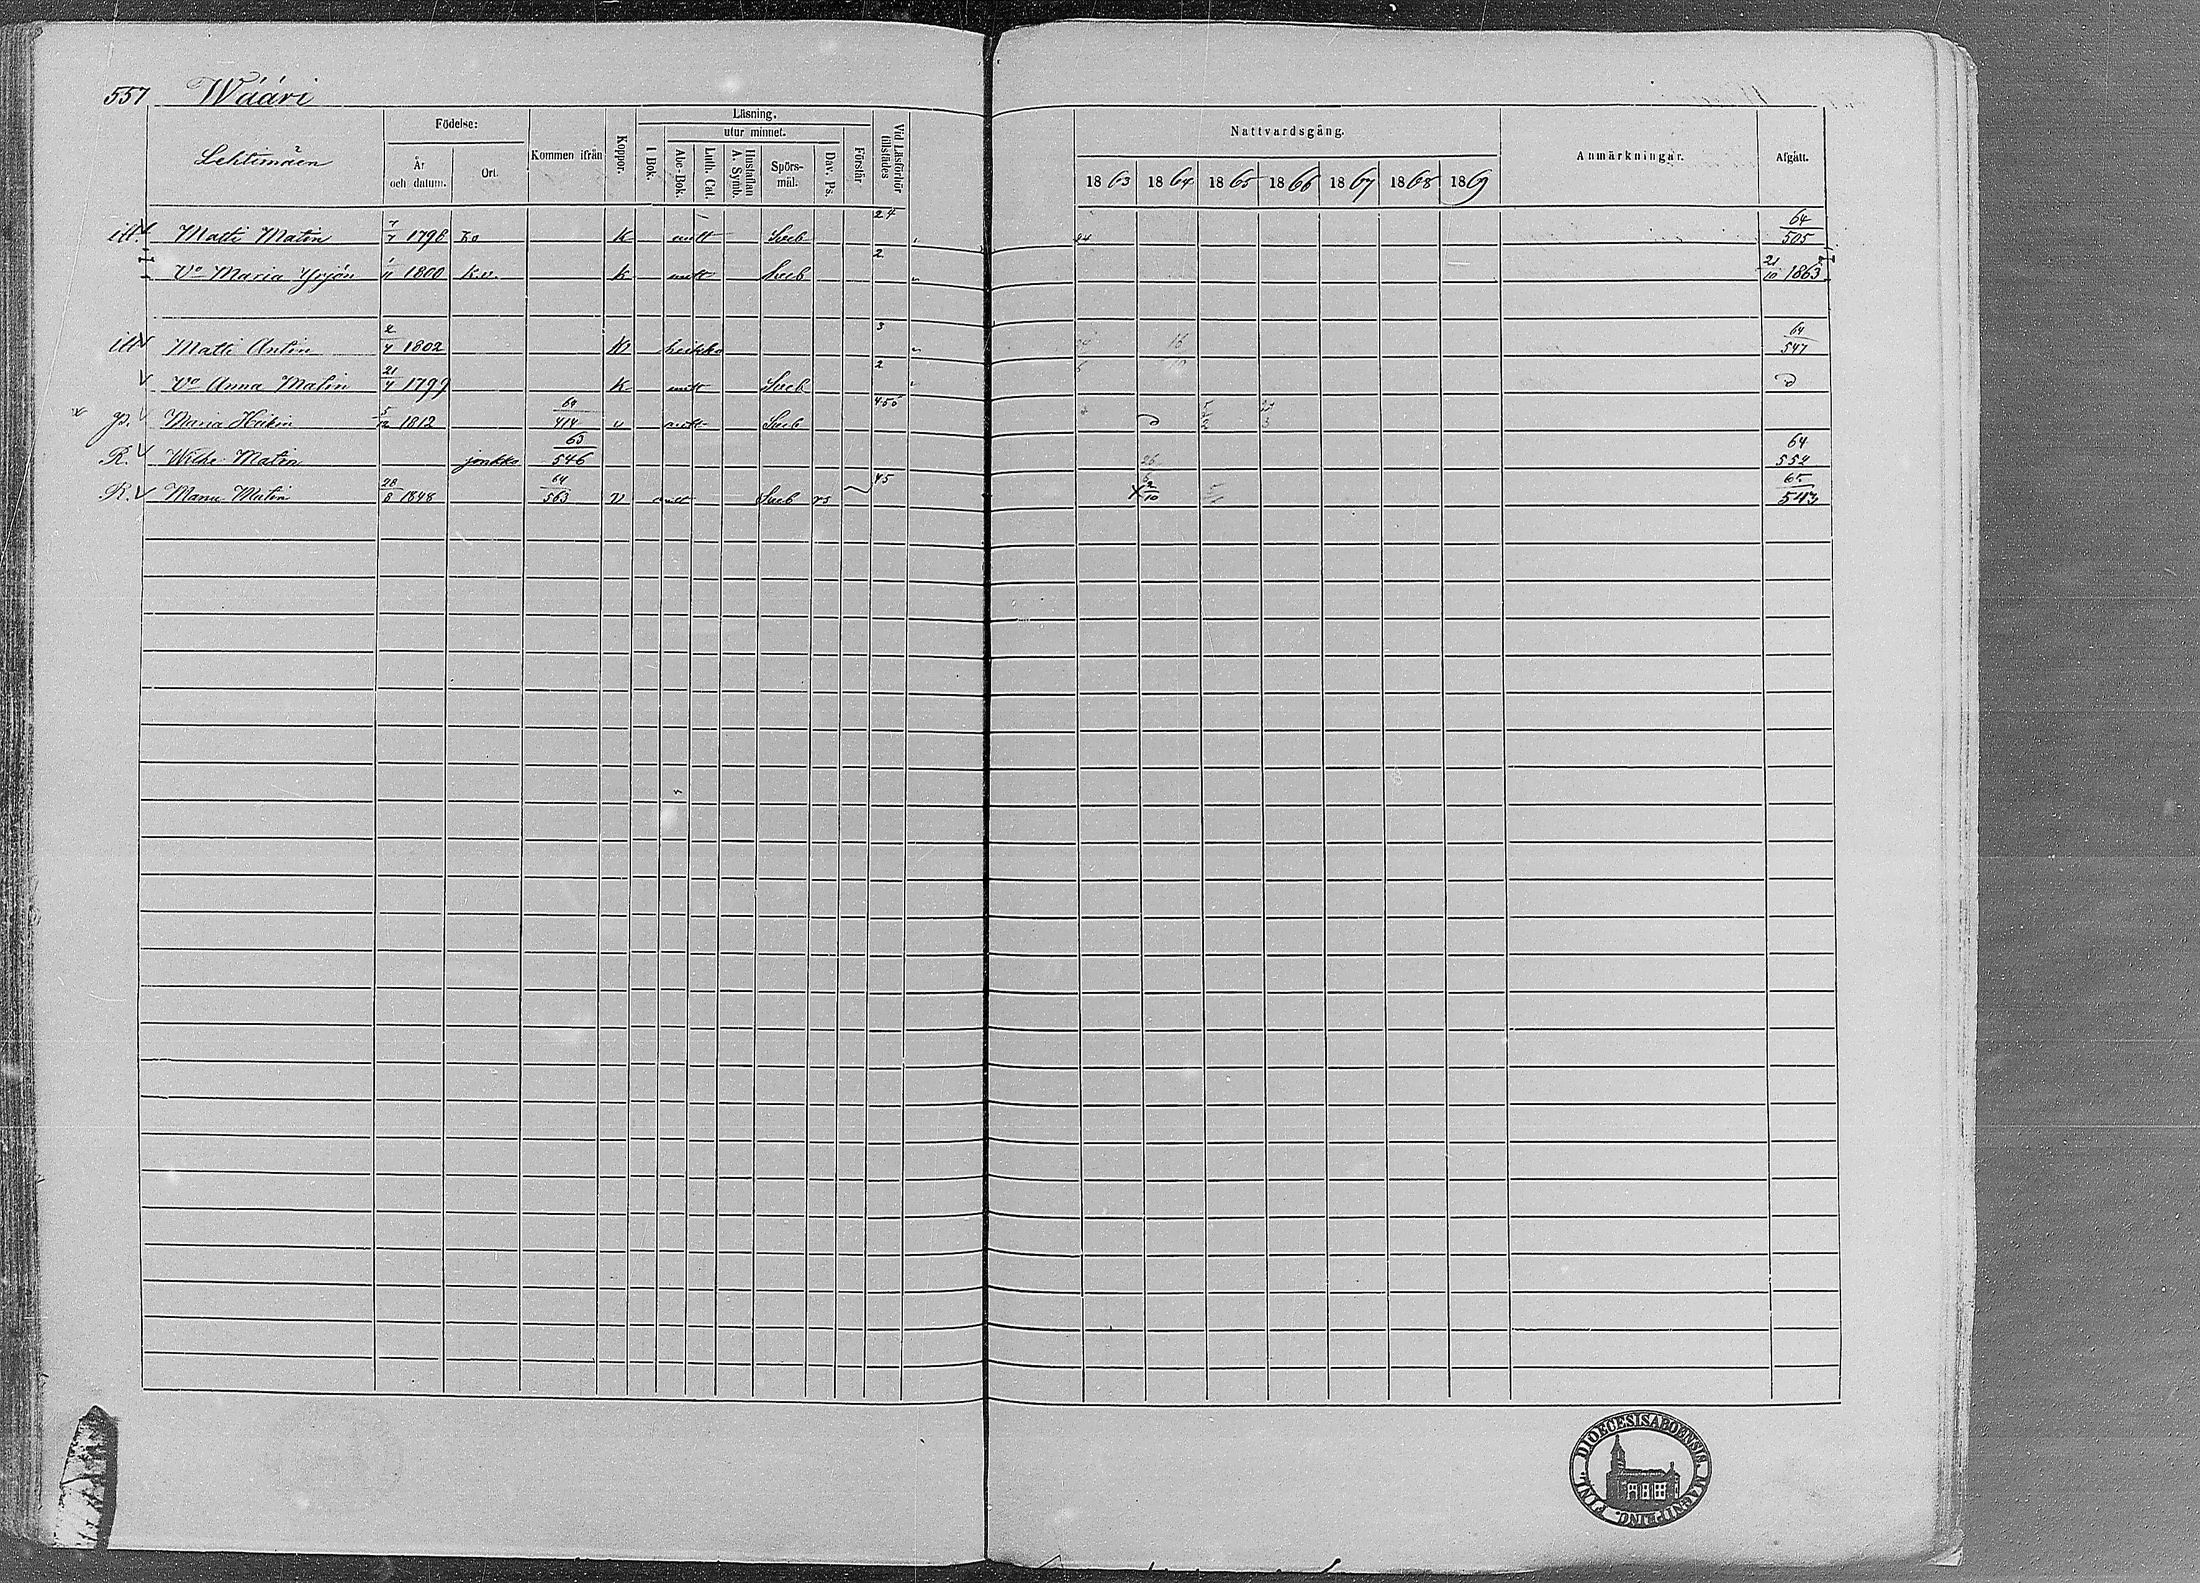 557 Wääri
Lehtimäen
Födelse:
År och datum.
Ort.
Kommen ifrån
Koppor.
Läsning.
I Bok.
utur minnet.
Abc-Bok.
Luth. Cat.
Hustaflan A. Symb.
Spörs-mål.
Dav. Ps.
Förstår
Vid Läsförhör tillstädes
Nattvardsgång.
1863 1864 1865 1866 1867 1868 1869
Anmärkningar.
Afgått.
itl. Matti Matin 7/7 1798 Ko K mitt Sveb 24 24 64/505
Vo Maria Yrjön 1800 K mitt Sveb 2 21/10 1863
itl Matti Antin 2/4 1802 K heikko 3 16 64/547
Vo Anna Matin 21/4 1799 K mitt Sveb 2
p. Maria Heikin 1812 64/414 v mitt Sveb 450
R. Matin jonkko 63/546 26 64/552
R. Manu Matin 28/8 1848 64/563 v Sveb 45 2/10 65/543
FINL. DIOECESIS ABOENSIS. MAGNI PRINC.